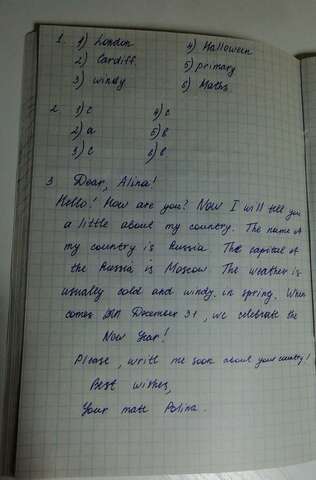 1. 1) London
2) Cardiff
3) windy
4) Halloween
5) primary
6) Maths
2. 1) c
2) a
3) c
4) c
5) b
6) b
3 Dear, Alina!
Hello! How are you? Now I will tell you
a little about my country. The name of
my country is Russia. The capital of
the Russia is Moscow. The weather is
usually cold and windy in spring. When
comes December 31, we celebrate the
New Year!
Please, write me soon about your country!
Best wishes,
Your mate Polina.